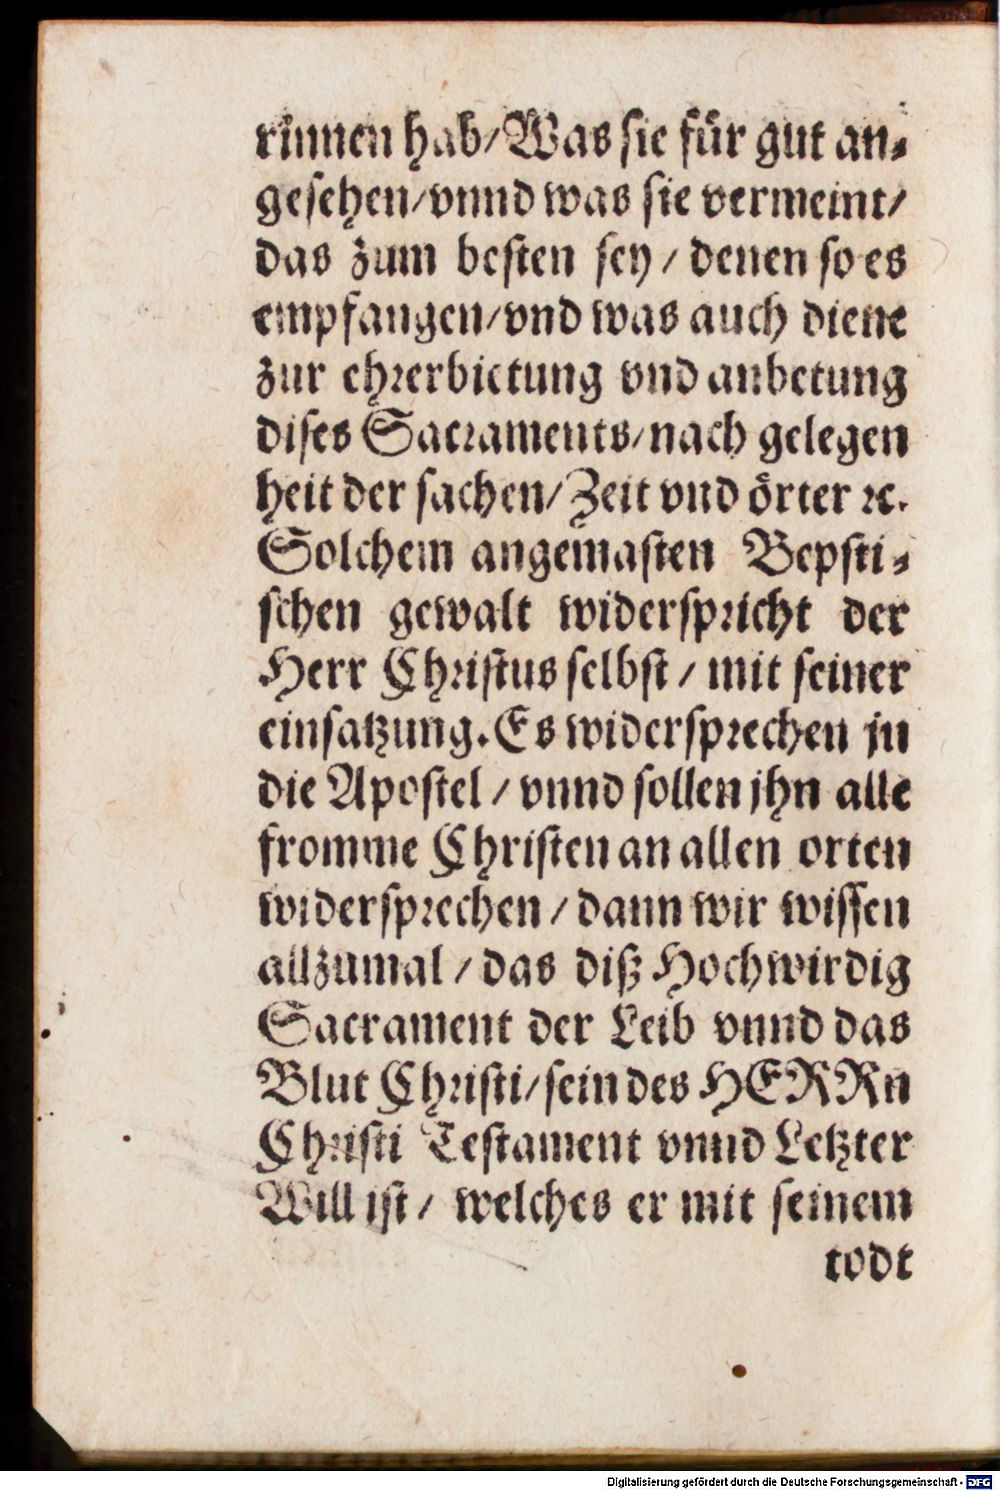 rinnen hab/Was sie für gut an⸗
gesehen/vnnd was sie vermeint/
das zum besten sey / denen so es
empfangen/vnd was auch diene
zur ehrerbietung vnd anbetung
dises Sacraments/nach gelegen
heit der sachen/Zeit vnd örter ꝛc.
Solchem angemasten Bepsti⸗
schen gewalt widerspricht der
Herr Christus selbst / mit seiner
einsatzung. Es widersprechen jn
die Apostel / vnnd sollen jhn alle
fromme Christen an allen orten
widersprechen / dann wir wissen
allzumal / das diß Hochwirdig
Sacrament der Leib vnnd das
Blut Christi/sein des HERRn
Christi Testament vnnd Letzter
Will ist / welches er mit seinem
todt
Digitalisierung gefördert durch die Deutsche Forschungsgemeinschaft - DFG